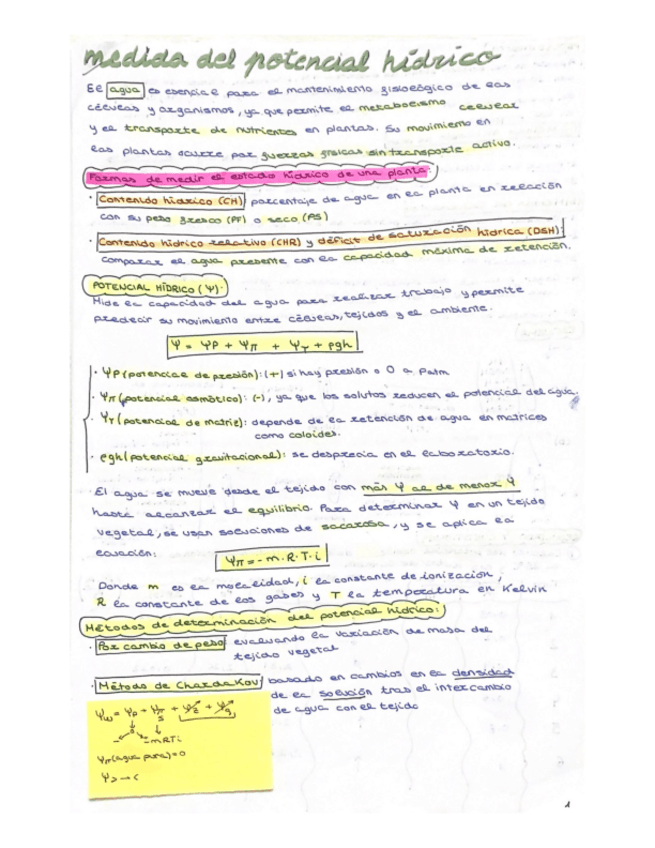 medida del potencial hídrico
El agua es esencial para el mantenimiento fisiológico de las
células y organismos, ya que permite el metabolismo celular
y el transporte de nutrientes en plantas. Su movimiento en
las plantas ocurre por fuerzas físicas sin transporte activo.
Formas de medir el estado hídrico de una planta:
· Contenido hídrico (CH) porcentaje de agua en la planta en relación
con su peso fresco (PF) o seco (PS)
· Contenido hídrico relativo (CHR) y déficit de saturación hídrica (DSH):
comparar el agua presente con la capacidad máxima de retención.
POTENCIAL HÍDRICO (Ψ):
Mide la capacidad del agua para realizar trabajo y permite
predecir su movimiento entre células, tejidos y el ambiente.
Ψ = ΨP + Ψπ + Ψτ + ρgh
· ΨP (potencial de presión): (+) si hay presión o 0 a Patm
· Ψπ (potencial osmótico): (-), ya que los solutos reducen el potencial del agua.
· Ψτ (potencial de matriz): depende de la retención de agua en matrices
como coloides.
· ρgh (potencial gravitacional): se desprecia en el laboratorio.
El agua se mueve desde el tejido con más Ψ al de menor Ψ
hasta alcanzar el equilibrio. Para determinar Ψ en un tejido
vegetal, se usan soluciones de sacarosa, y se aplica la
ecuación: Ψπ = - m · R · T · i
Donde m es la molalidad, i la constante de ionización,
R la constante de los gases y T la temperatura en Kelvin
Métodos de determinación del potencial hídrico:
· Por cambio de peso evaluando la variación de masa del
tejido vegetal
· Método de Chardakov basado en cambios en la densidad
de la solución tras el intercambio
de agua con el tejido
Ψw = Ψp + Ψ
- mRTi
(agua pura) = 0
1